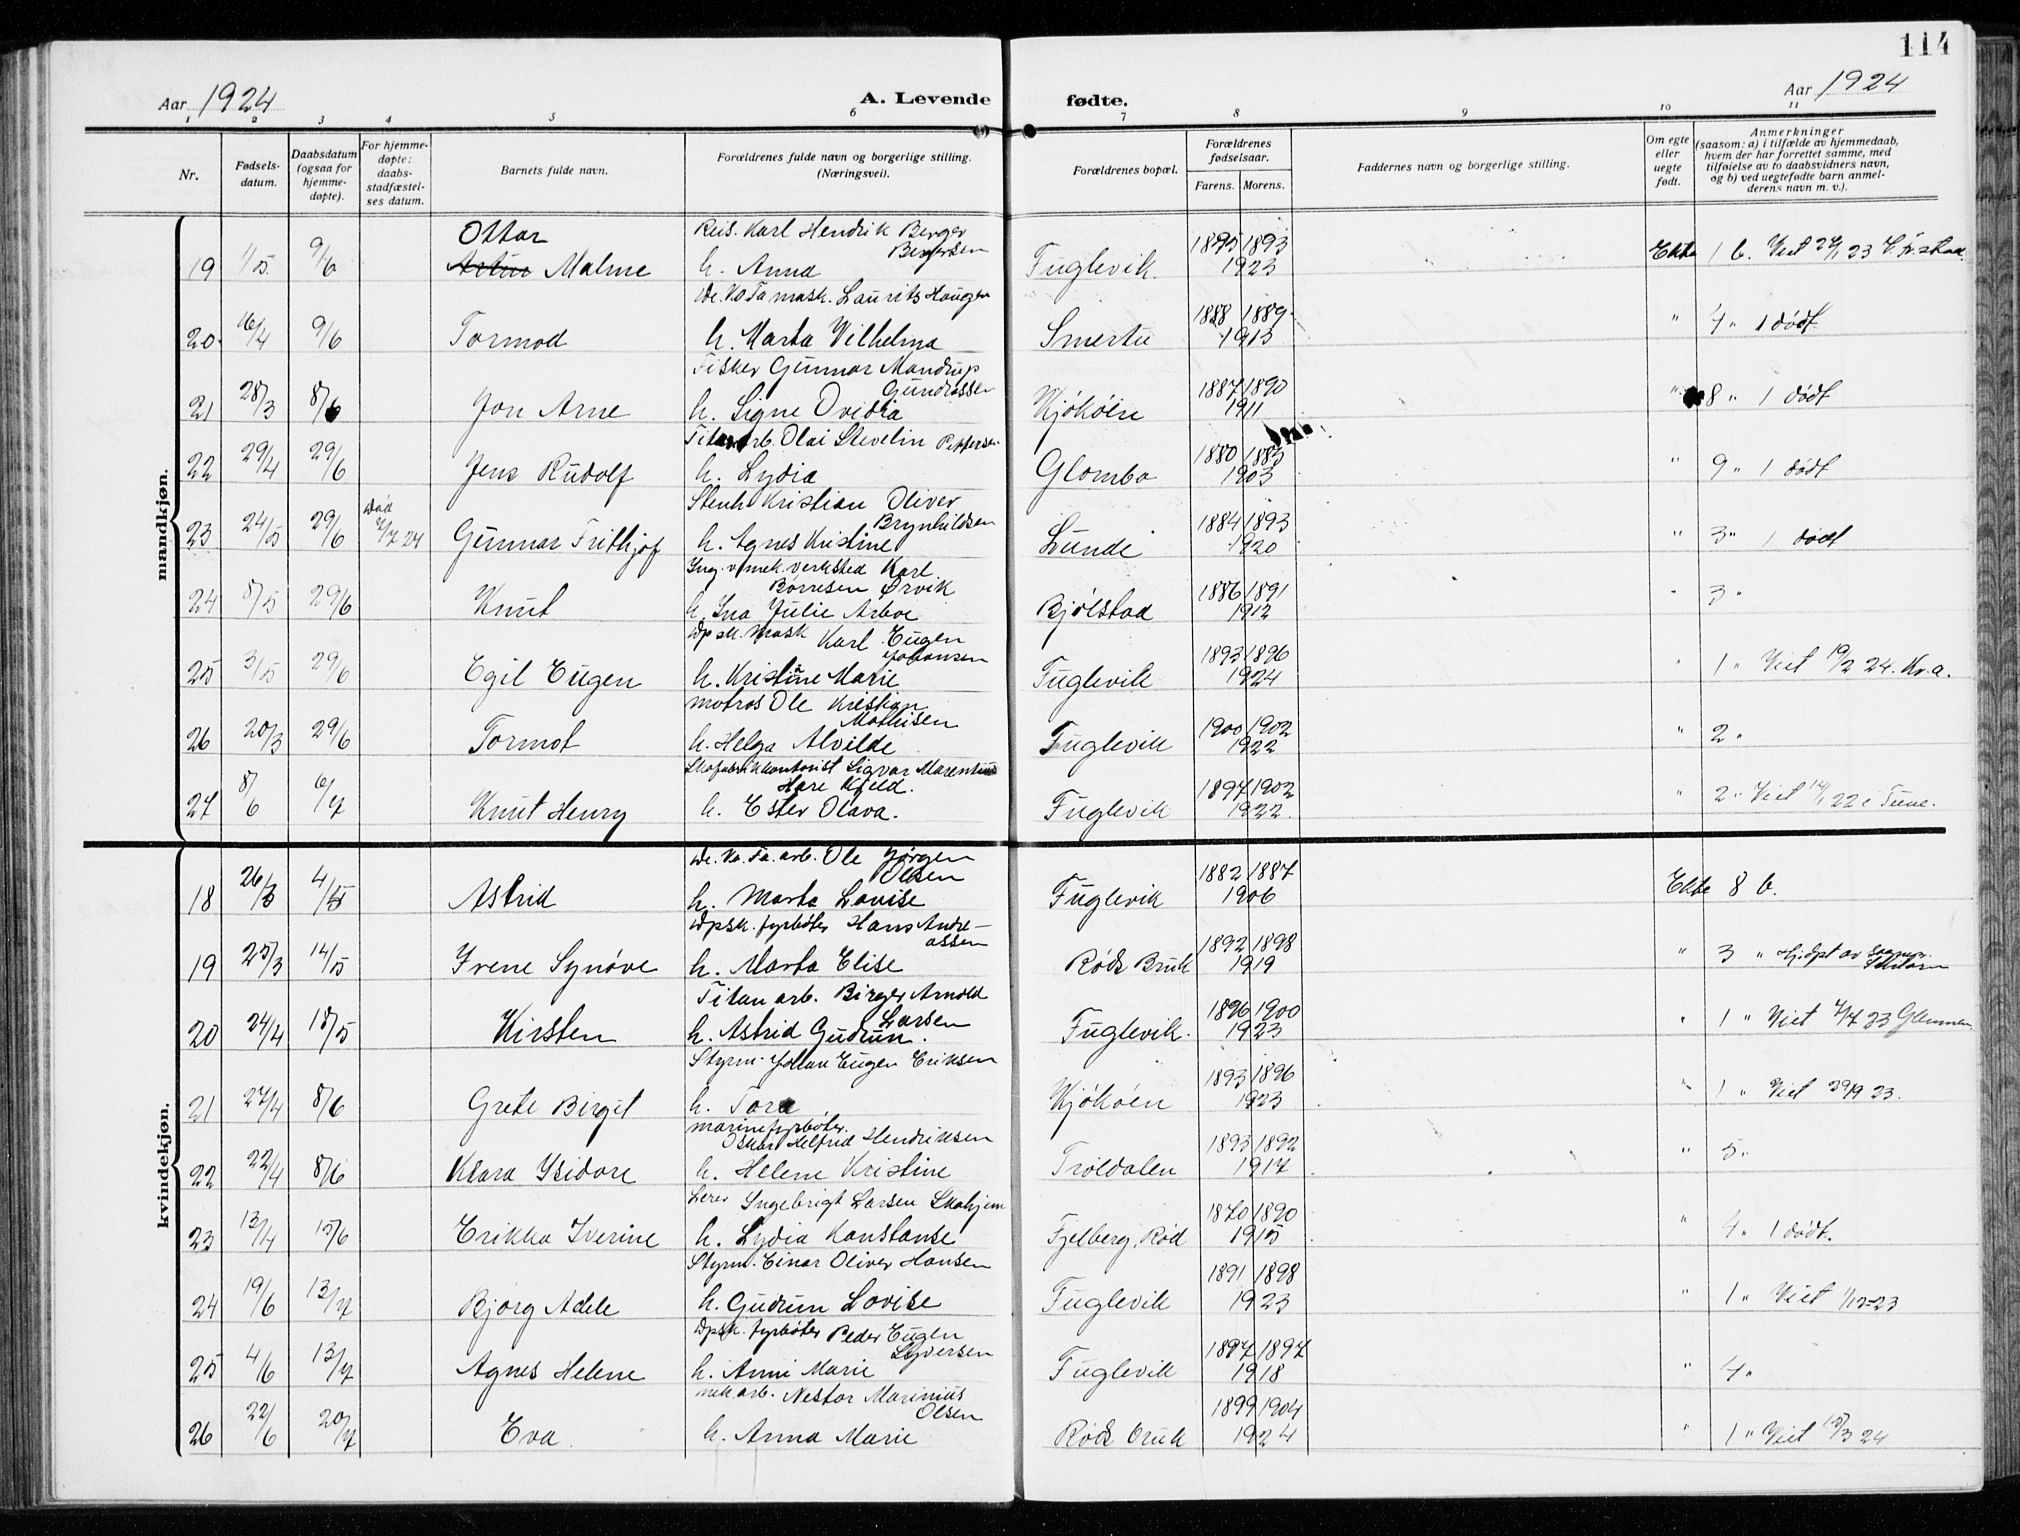 114
Aar 1924 A. Levende fødte. Aar 1924
1 2 3 4 5 6 7 8 9 10 11
Nr.
Fødsels-
datum.
Daabsdatum
(ogsaa for
hjemme-
døpte).
For hjemme-
døpte:
daabs-
stadfæstel-
ses datum.
Barnets fulde navn.
Forældrenes fulde navn og borgerlige stilling.
(Næringsvei).
Forældrenes bopæl.
Forældrenes
fødselsaar.
Farens. Morens.
Faddernes navn og borgerlige stilling.
Om egte
eller
uegte
født.
Anmerkninger
(saasom: a) i tilfælde av hjemmedaab,
hvem der har forrettet samme, med
tilføielse av to daabsvidners navn,
og b) ved uegtefødte barn anmel-
derens navn m. v.).
mandkjøn.
Ottar Reis. Karl Hendrik Berger
Bergersen
19 1/5. 9/6 Malme h. Anna Fuglevik. 1895 1893 Ekte 1 b. Viet 23
1923
Laurits Haugen
20 16/4 9/6 Tormod h. Marta Vilhelma Smertu 1888 1889 " 4 " 1 dödt
1913
Fisker Gunnar Mandrup
Gundrossen
21 28/3 8/6 Jon Arne h. Signe Ovidia Kjøkøen 1887 1890 " 8 " 1 dödt
1911
Titan arb. Olai Stevelin Pettersen
22 29/4 29/6 Jens Rudolf h. Lydia Glombo 1880 1883 " 9 " 1 dödt
1903
Stenh. Kristian Oliver
Brynhildsen
23 24/5 29/6 Död 24 Gunnar Frithjof h. Agnes Kristine Lunde 1884 1893 " 3 " 1 dödt
1920
Ing. v. mek. verksted Karl
Børresen Ørvik
24 8/5 29/6 Knut h. Ina Julie Arboe Bjølstad 1886 1891 " 3 "
1912
Dpsk. mask Karl Eugen
Johansen
25 3/5 29/6 Egil Eugen h. Kristine Marie Fuglevik 1893 1896 " 1 " Viet 19/2 24. Kr.a.
1924
matros Ole Kristian
Mathisen
26 20/3 29/6 Tormot h. Helga Alvilde Fuglevik 1900 1902 " 2 "
1922
Skofabrikkontorist Sigvar Marentius
Hare Kjeld.
27 8/6 6/7 Knut Henry h. Ester Olava. Fuglevik 1897 1902 " 2 " Viet 14/1 22 i Tune.
1922
kvindekjøn.
De. No. Fa. arb. Ole Jørgen
Olsen
18 26/3 4/5 Astrid h. Marta Lovise Fuglevik 1882 1887 Ekte 8 b.
1906
Dpsk. fyrbøter Hans Andre-
assen
19 25/3 14/5 Irene Synøve h. Marta Elise Røds Bruk 1892 1898 " 3 " Hj.dpt av
1919
Titan arb. Birger Arnold
Larsen
20 24/4 18/5 Kirsten h. Astrid Gudrun. Fuglevik. 1896 1900 " 1 " Viet 23 Glemmen
1923
Styrm. Johan Eugen Eriksen
21 27/4 8/6 Grete Birgit h. Tora Kjøkøen 1893 1896 " 1 " Viet 29/9 23.
1923
marinefyrbøter.
Oskar Helfred Hendriksen
22 22/4 8/6 Klara Ysidore h. Helene Kristine Troldalen 1893 1892 " 5 "
1917
Lerer Ingebrigt Larsen Skahjem
23 13/4 15/6 Erikka Iverine h. Lydia Konstanse Fjelberg, Rød 1870 1890 " 4 " 1 dödt.
1915
Styrm. Einar Oliver Hansen
24 19/6 13/7 Bjørg Adele h. Gudrun Lovise Fuglevik 1891 1898 " 1 " Viet 1/12-23
1923
Dpsk. fyrbøter Peder Eugen
Syversen
25 4/6 13/7 Agnes Helene h. Anni Marie Fuglevik 1897 1897 " 4 "
1918
mek arb. Nestor Marinius
Olsen
26 22/6 20/7 Eva h. Anna Marie Røds Bruk 1899 1904 " 1 " Viet 15/3 24
1924